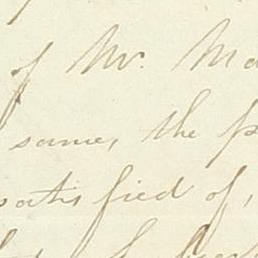 of Mr. Ma
same, the p
satisfied of,